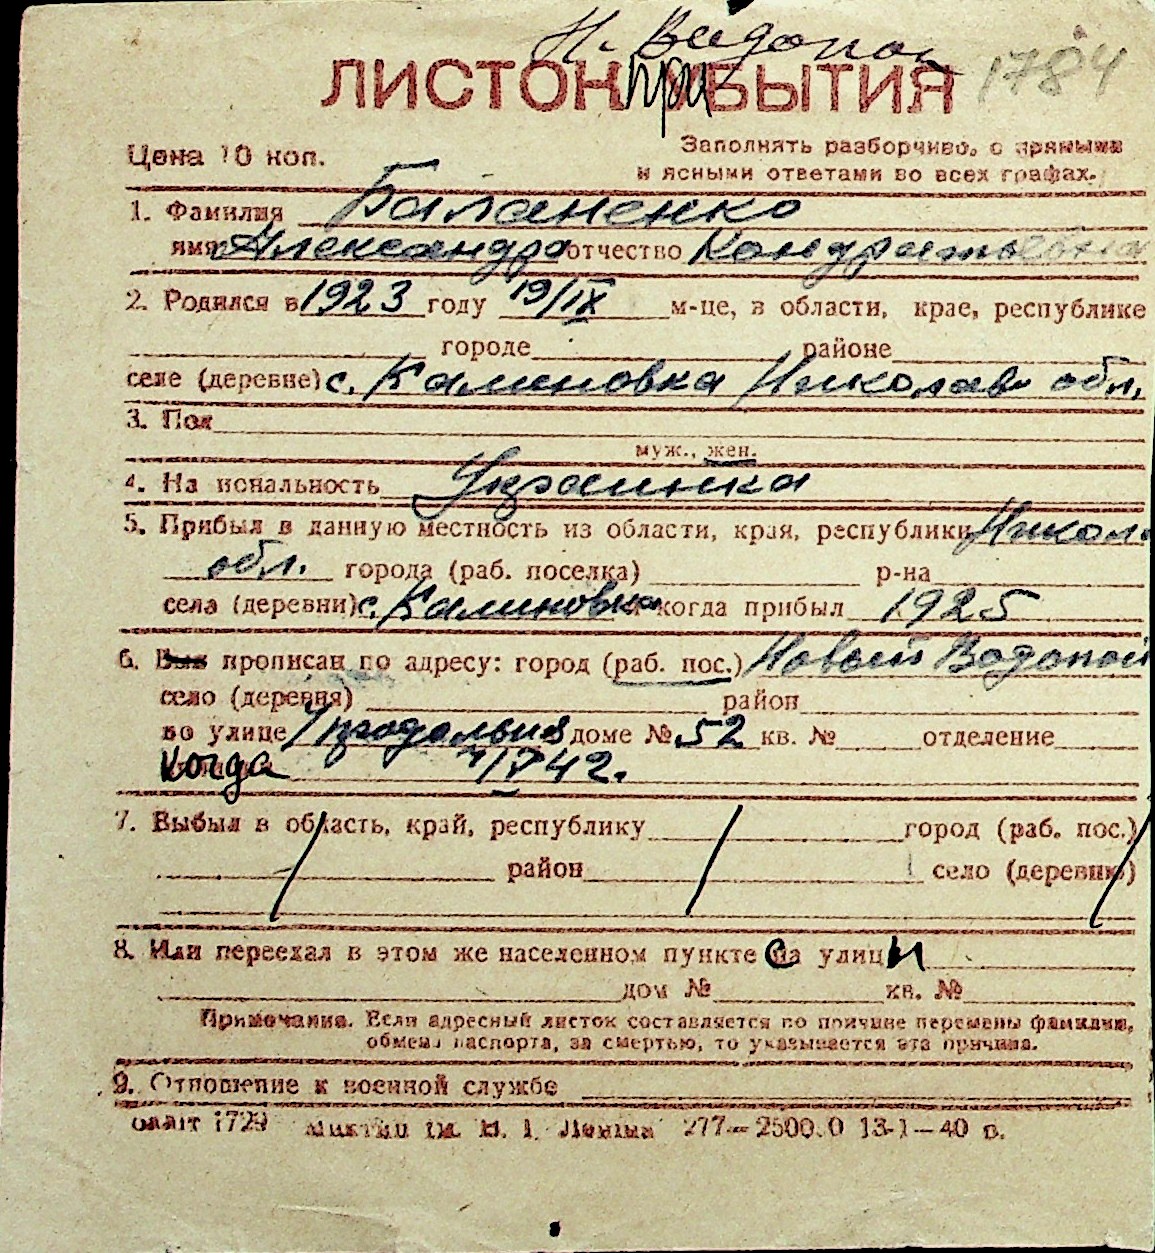 Н. Водопой
1784
ЛИСТОК прИБЫТИЯ
Цена 10 коп.
Заполнять разборчиво, с прямыми
и ясными ответами во всех графах.
1. Фамилия Баланенко
имя Александра отчество Кондратьевна
2. Родился в 1923 году 19/IX м-це, в области, крае, республике
городе районе
селе (деревне) с. Калиновка Николаев обл.
3. Пол
муж., жен.
4. Национальность Украинка
5. Прибыл в данную местность из области, края, республики Никол.
обл. города (раб. поселка) р-на
села (деревни) с. Калиновка когда прибыл 1925
6. Был прописан по адресу: город (раб. пос.) Новый Водопой
село (деревня) район
по улице продольная доме № 52 кв. № отделение
когда 42.
7. Выбыл в область, край, республику город (раб. пос.)
район село (деревню)
8. Или переехал в этом же населенном пункте с улици
дом № кв. №
Примечание. Если адресный листок составляется по причине перемены фамилии,
обмена паспорта, за смертью, то указывается эта причина.
9. Отношение к военной службе
1729 Леніна 277—2500.0 13-1—40 р.